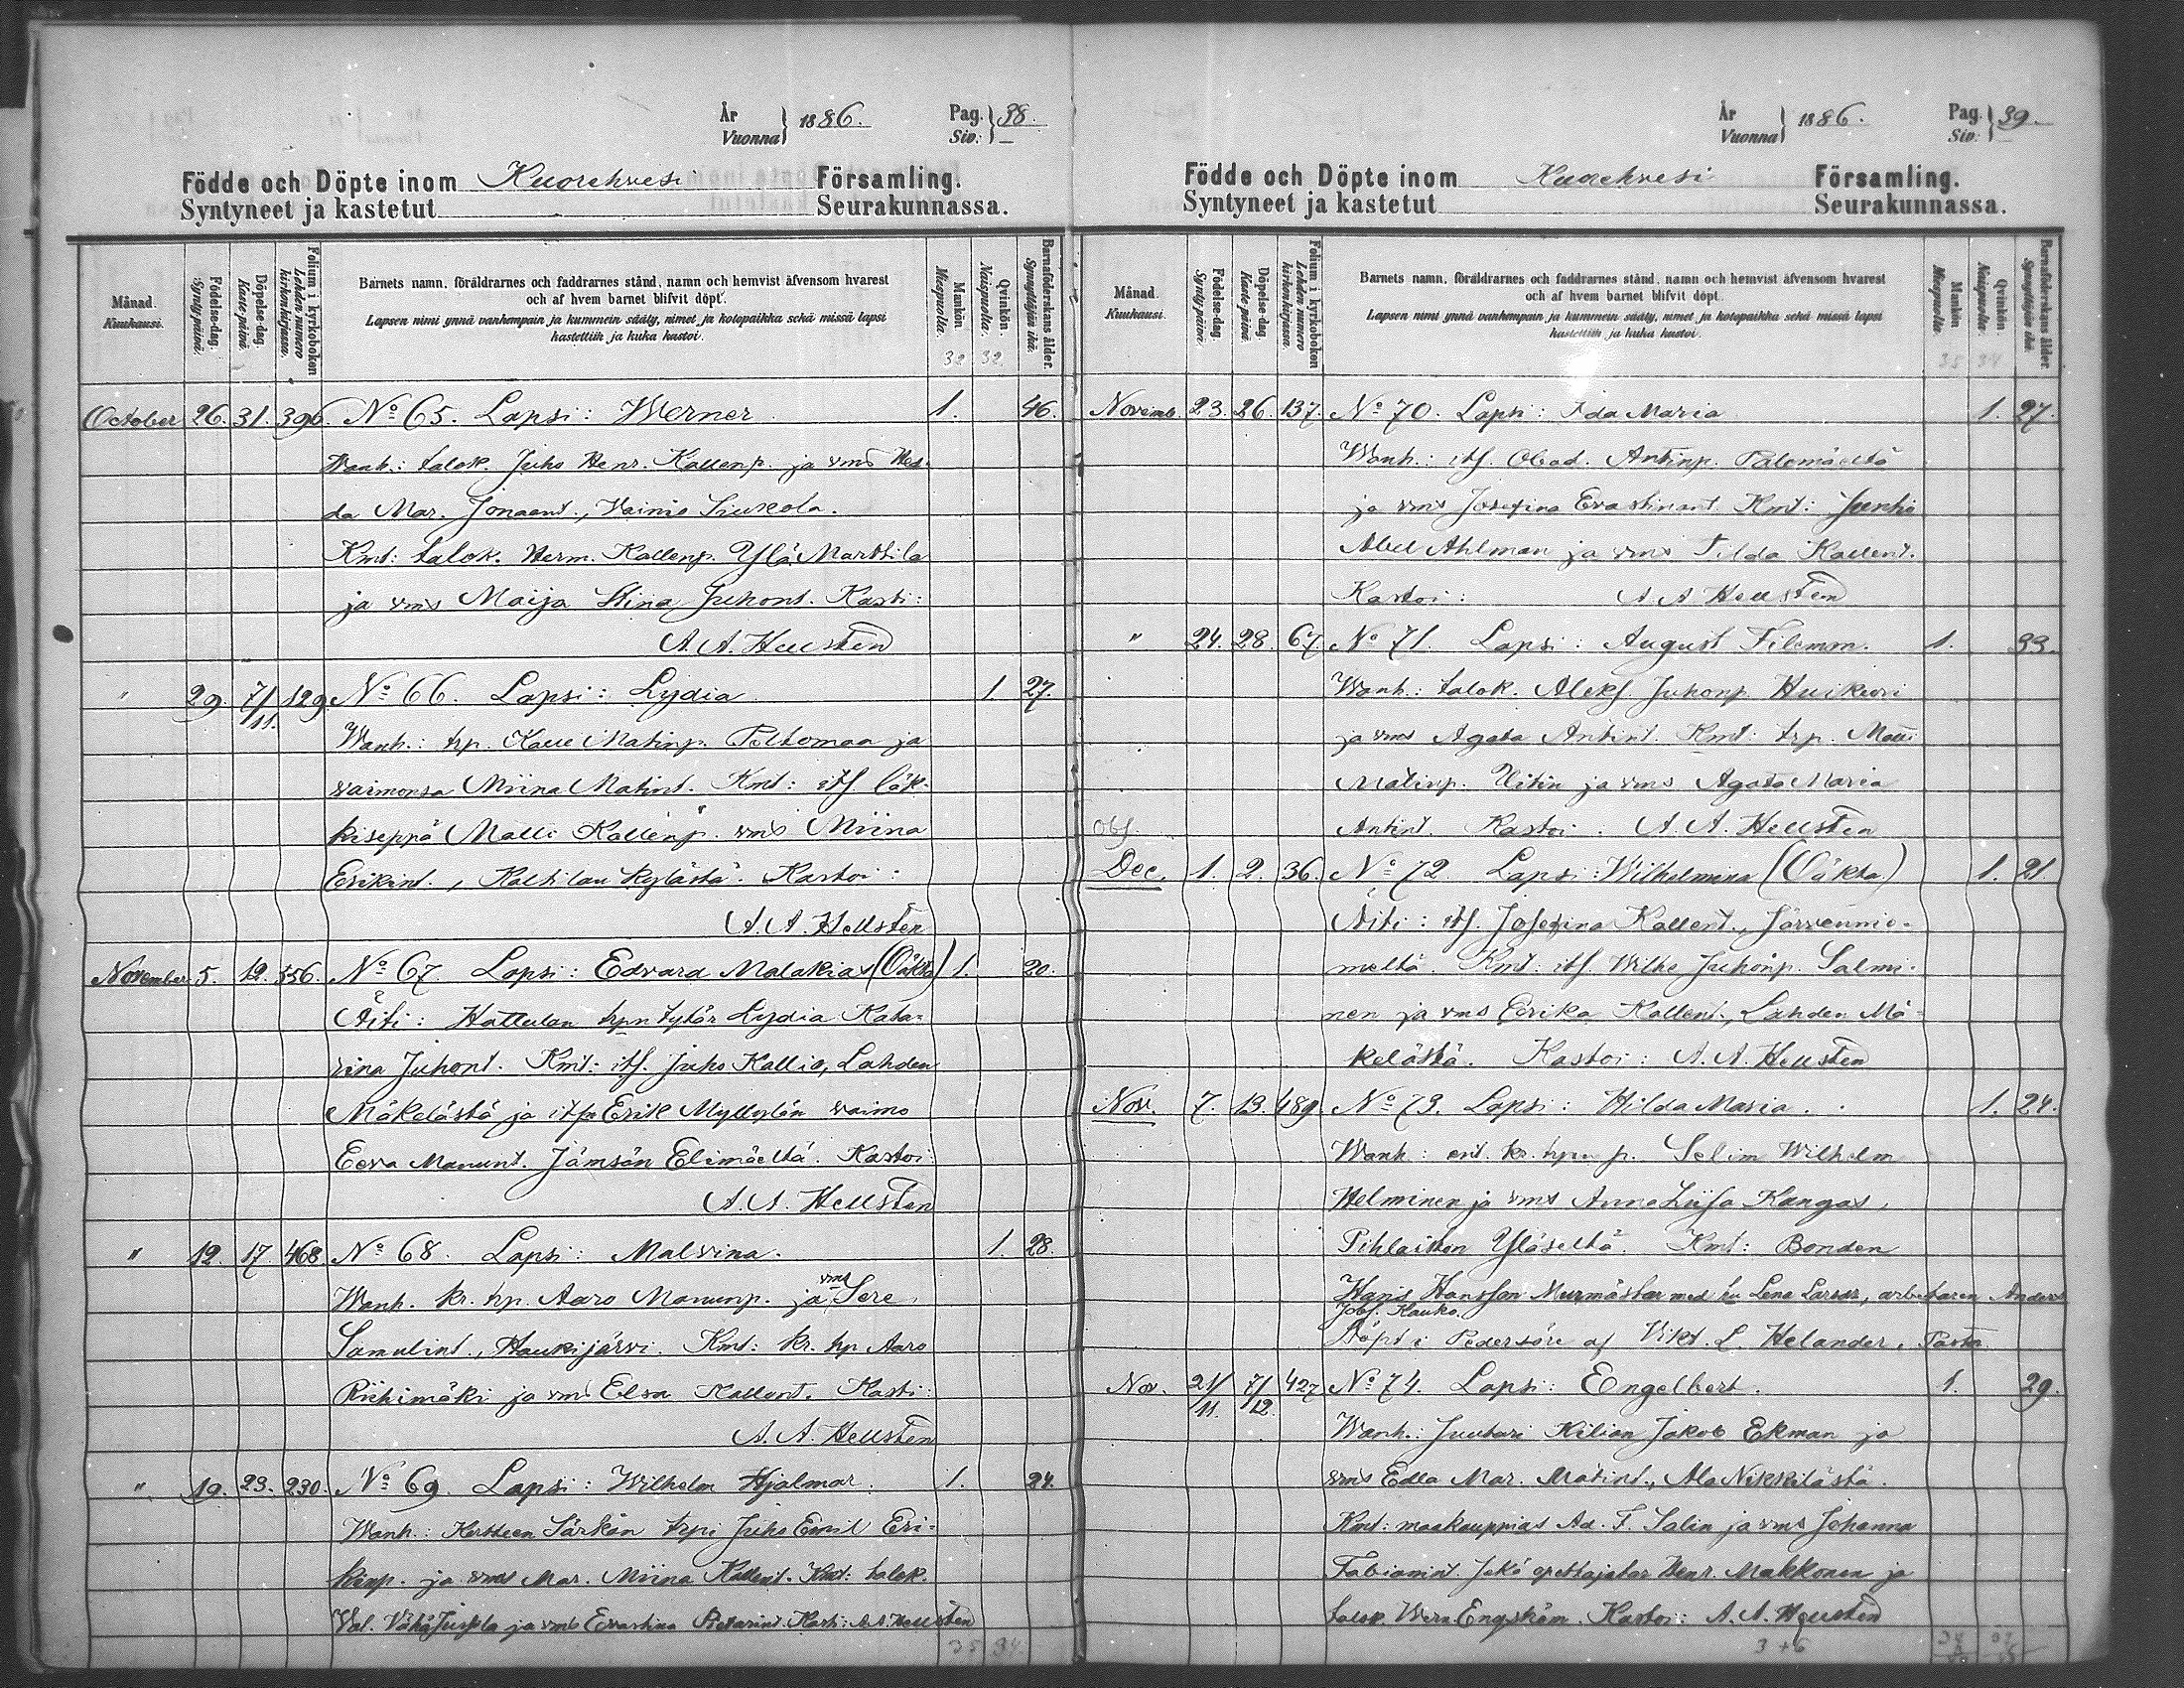 År
Vuonna } 1886. Pag. Siv. } 38.
Födde och Döpte inom Kuorehvesi Församling.
Syntyneet ja kastetut Seurakunnassa.
Månad. Kuukausi.
Födelse-dag. Synty päivä.
Döpelse-dag. Kaste päivä.
Folium i kyrkobokon Lehden numero kirkonkirjassa.
Barnets namn, föräldrarnes och faddrarnes stånd, namn och hemvist äfvensom hvarest
och af hvem barnet blifvit döpt.
Lapsen nimi ynnä vanhempain ja kummein sääty, nimet ja kotopaikka sekä missä lapsi
kastettiin ja kuka kastoi.
Mankön Miespuolta.
Qvinkön Naispuolta.
Barnaföderskans ålder. Synnyttäjän ikä.
32 32.
October 26. 31. 396. No 65. Lapsi: Werner 1. 46.
Wanh.: talok. Juho Henr. Kallenp. ja vms Hed-
da Mar. Jonaent., Wainio Siukola.
Kmt: talok. Herm. Kallenp. Ylä Marttila
ja vms Maija Stina Juhont. Kasti:
A. A. Hellsten
" 29. 7/11. 129. No 66. Lapsi: Lydia 1. 27.
Wanh.: trp. Kalle Matinp. Poltomaa ja
vaimonsa Miina Matint. Kmt: itf. läk-
kiseppä Malli Kallenp. vms Miina
Erikint., Kaltilan kylästä. Kastoi:
A. A. Hellsten
November 5. 12. 556. No 67. Lapsi: Edvard Malakias (Oäkta) 1. 20.
Äiti: Hattulan trpn tytär Lydia Kata-
rina Juhont. Kmt: itf. Juho Kallio, Lahden
Mäkelästä ja itfn Erik Myllylän vaimo
Eeva Manunt. Jämsän Elimäeltä. Kastoi:
A. A. Hellsten
" 12. 17. 468. No 68. Lapsi: Malvina. 1. 28.
Wanh. kr. trp. Aaro Manunp. ja vms Sere
Samulint., Haukijärvi. Kmt: kr. trp Aaro
Riihimäki ja vms Elsa Kallent. Kasti:
A. A. Hellsten
" 19. 23. 230. No 69. Lapsi: Wilhelm Hjalmar. 1. 24.
Wanh.: Kertteen Särkän trpi Juho Emil Eri-
kinp. ja vms Mar. Miina Kallent. Kmt: talok.
Val. Vähä Juskla ja vms Evastina Pietarint. Kasti: A. A. Hellsten
35 34.
År
Vuonna } 1886. Pag. Siv. } 39.
Födde och Döpte inom Kuorehvesi Församling.
Syntyneet ja kastetut Seurakunnassa.
Månad. Kuukausi.
Födelse-dag. Synty päivä.
Döpelse-dag. Kaste päivä.
Folium i kyrkobokon Lehden numero kirkonkirjassa.
Barnets namn, föräldrarnes och faddrarnes stånd, namn och hemvist äfvensom hvarest
och af hvem barnet blifvit döpt.
Lapsen nimi ynnä vanhempain ja kummein sääty, nimet ja kotopaikka sekä missä lapsi
kastettiin ja kuka kastoi.
Mankön Miespuolta.
Qvinkön Naispuolta.
Barnaföderskans ålder. Synnyttäjän ikä.
35 34
Novemb. 23. 26. 137. No 70. Lapsi: Ida Maria 1. 27.
Wanh.: itf. Obed. Antinp. Palomäeltä
ja vms Josefina Evastinant. Kmt: Juntti
Abel Ahlman ja vms Tilda Kallent.
Kastoi: A. A. Hellsten
" 24. 28. 67. No 71. Lapsi: August Filemm. 1. 33.
Wanh.: talok. Aleks. Juhonp. Huikuri
ja vms Agata Antint. Kmt: trp. Matti
Matinp. Uitin ja vms Agata Maria
Antint. Kastoi. A. A. Hellsten
Obs.
Dec. 1. 2. 36. No 72 Lapsi: Wilhelmina (Oäkta) 1. 21
Äiti: itf. Josefina Kallent., Järvennie-
meltä. Kmt: itf. Wilhe Juhonp. Salmi-
nen ja vms Erika Kallent., Lahden Mä-
kelästä. Kastoi: A. A. Hellsten
Nov. 7. 13. 489. No 73. Lapsi: Hilda Maria. 1. 24.
Wanh: ent. kr. trpn p. Selim Wilhelm
Helminen ja vms Anna Liisa Kangas,
Pihlaiston Yläseltä. Kmt: Bonden
Hans Hansson Murmästar med hu Lena Larsdr, arbetaren Anders
Jobs. Kauko.
Döpt i Pedersöre af Vikt. L. Helander, Pastor.
Nov. 21/11. 7/12. 427 No 74. Lapsi: Engelbert. 1. 29.
Wanh.: Suutari Kilian Jakob Ekman ja
vms Edla Mar. Matint., Ala Nikkilästä.
Kmt: maakauppias Ad. F. Salin ja vms Johanna
Fabianint. sekä opettajatar Henr. Makkonen ja
talok. Wern Engström. Kastoi: A. A. Hellsten
3+6